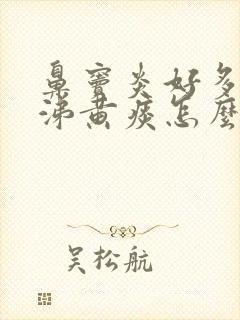 鼻窦炎好多
涕黄痰怎麼
吴松航